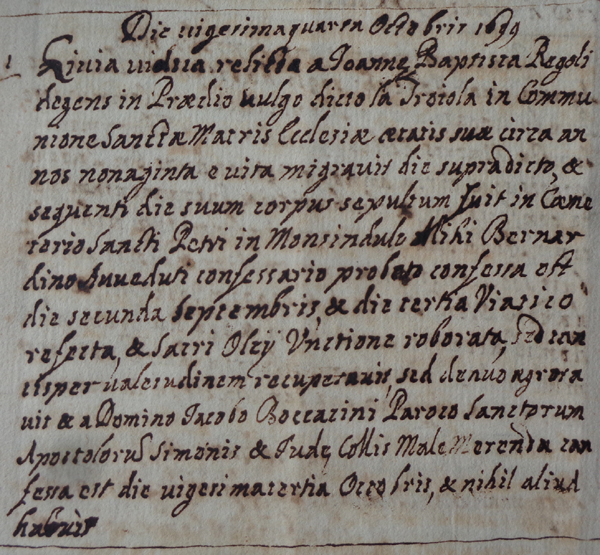 Die vigesimaquarta Octobris 1699
1 Livia vidua relicta a Joanne Baptista Regoli
degens in Prædio vulgo dicto la Troiola in Commu
nione Sanctæ Matris Ecclesiæ ætatis suæ circa an
nos nonaginta e vita migravit die supradicto, &
sequenti die suum corpus sepultum fuit in Cæme
terio Sancti Petri in Monsindulo Mihi Bernar
dino Avveduti confessario probato confessa est
die secunda Septembris, & die tertia Viatico
refecta, & Sacri Oleÿ Unctione roborata, sed tan
tisper valetudinem recuperavit, sed denuo ægrota
vit & a Domino Jacobo Boccacini Paroco Sanctorum
Apostolorũ Simonis & Judę Collis Male Merenda con
fessa est die vigesimatertia Octobris, & nihil aliud
habuit